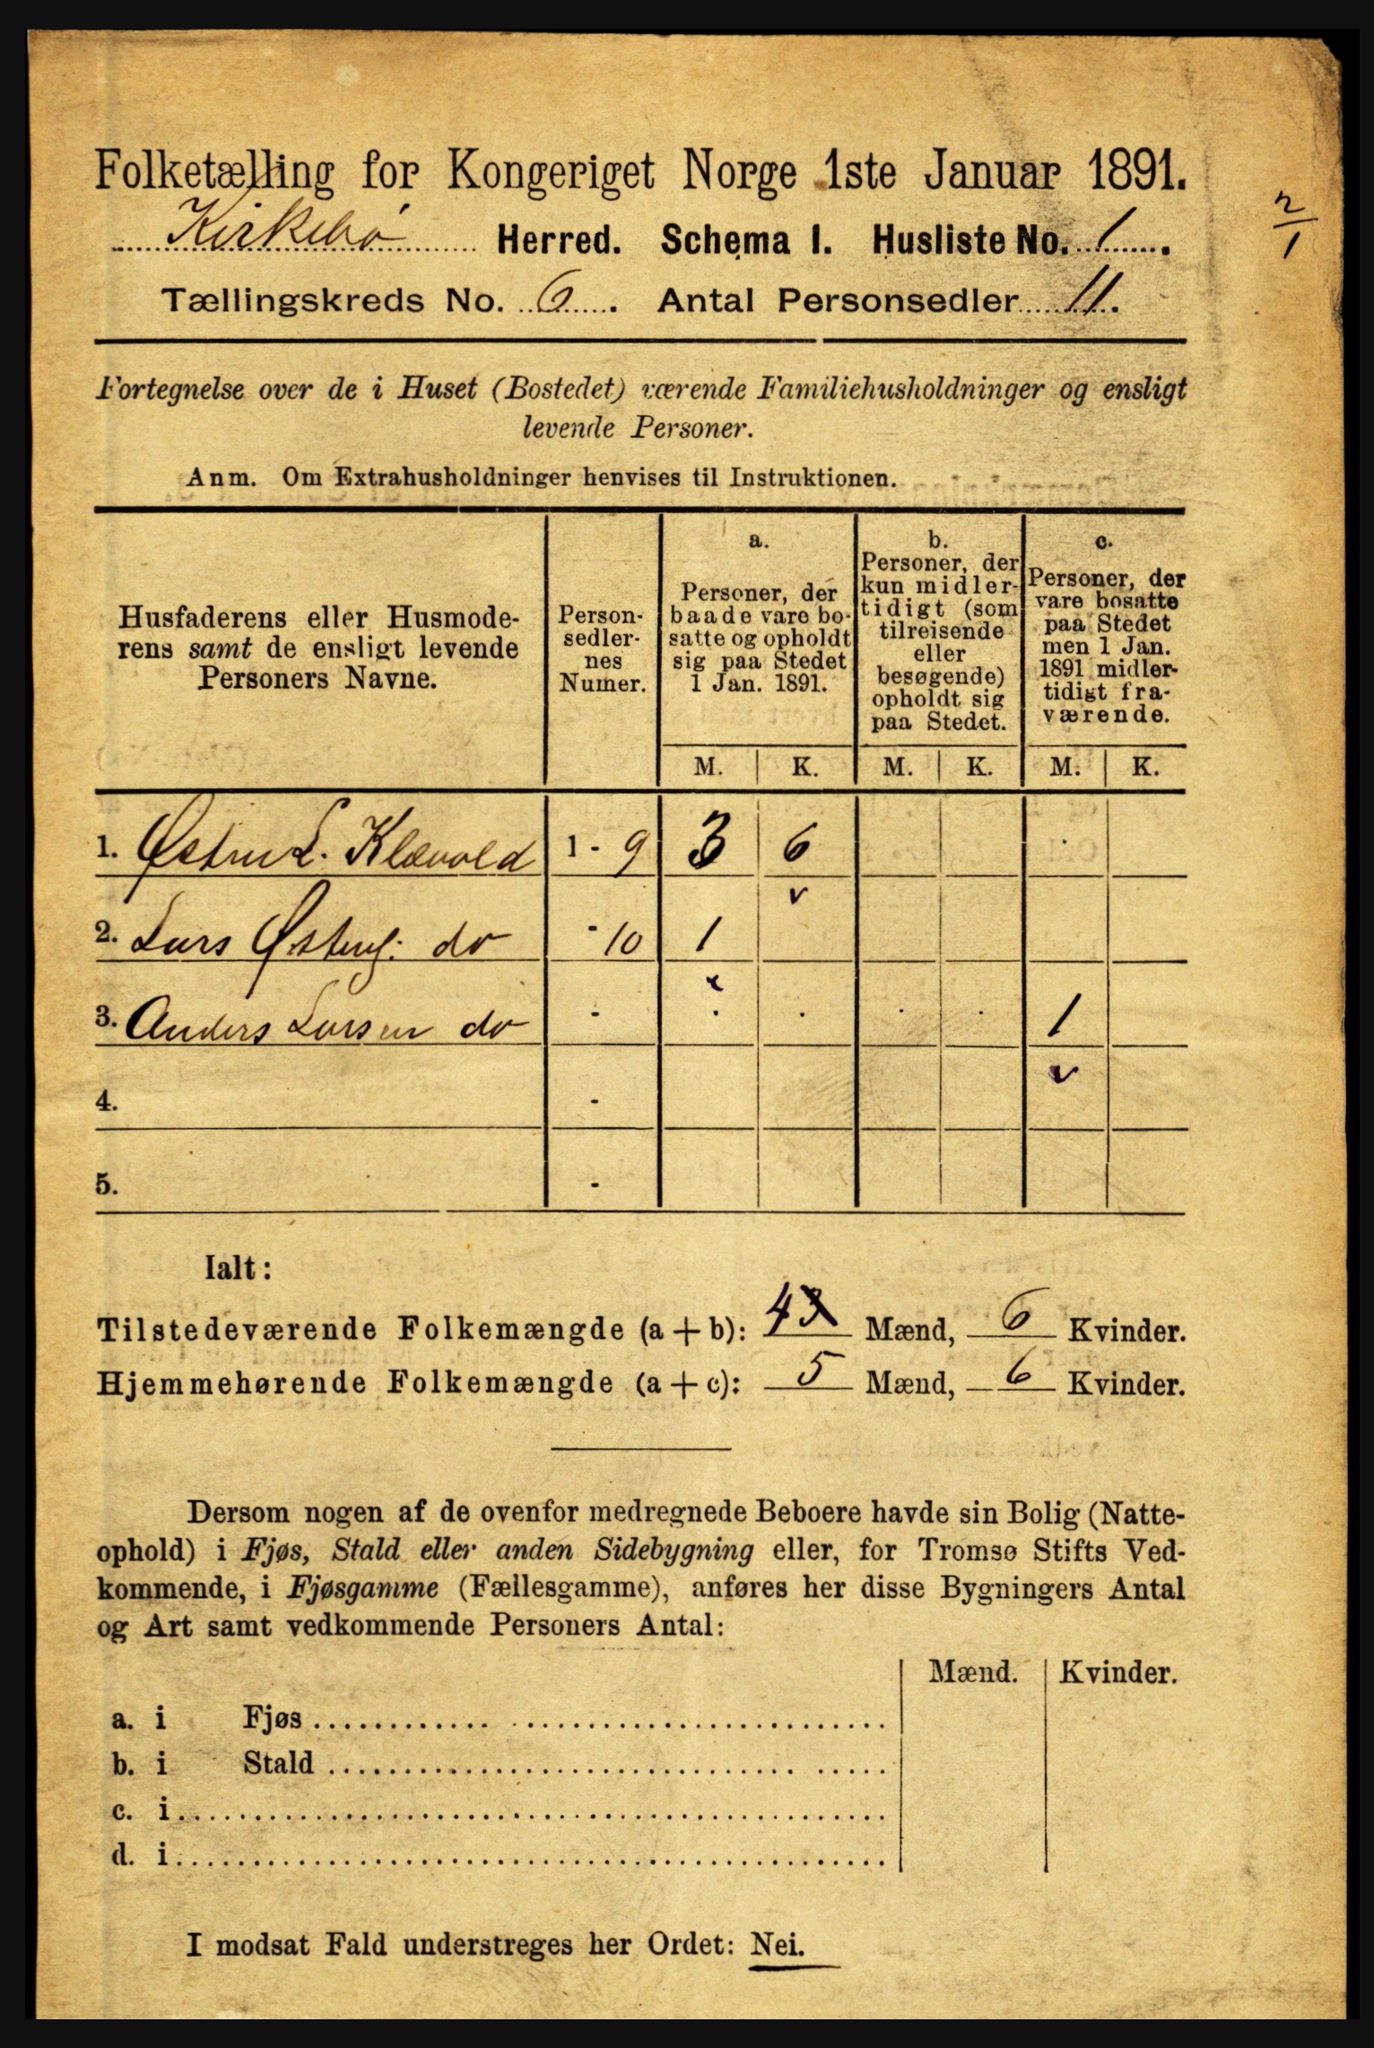 Folketælling for Kongeriget Norge 1ste Januar 1891.
Kirkebø Herred. Schema I. Husliste No. 1.
2/1
Tællingskreds No. 6. Antal Personsedler 11.
Fortegnelse over de i Huset (Bostedet) værende Familiehusholdninger og ensligt
levende Personer.
Anm. Om Extrahusholdninger henvises til Instruktionen.
Husfaderens eller Husmode-
rens samt de ensligt levende
Personers Navne.
Person-
sedler-
nes
Numer.
a.
Personer, der
baade vare bo-
satte og opholdt
sig paa Stedet
1 Jan. 1891.
b.
Personer, der
kun midler-
tidigt (som
tilreisende
eller
besøgende)
opholdt sig
paa Stedet.
c.
Personer, der
vare bosatte
paa Stedet
men 1 Jan.
1891 midler-
tidigt fra-
værende.
M. K. M. K. M. K.
1. L. Klævold 1 - 9 3 6
2. Lars do - 10 1
3. Anders Larsen do - 1
4. -
5. -
Ialt:
Tilstedeværende Folkemængde (a + b): 4 Mænd, 6 Kvinder.
Hjemmehørende Folkemængde (a + c): 5 Mænd, 6 Kvinder.
Dersom nogen af de ovenfor medregnede Beboere havde sin Bolig (Natte-
ophold) i Fjøs, Stald eller anden Sidebygning eller, for Tromsø Stifts Ved-
kommende, i Fjøsgamme (Fællesgamme), anføres her disse Bygningers Antal
og Art samt vedkommende Personers Antal:
Mænd. Kvinder.
a. i Fjøs
b. i Stald
c. i
d. i
I modsat Fald understreges her Ordet: Nei.